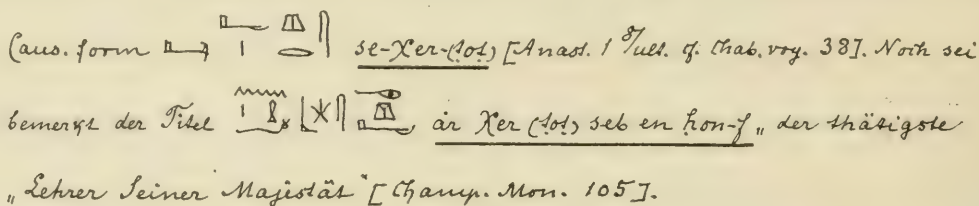 (caus. form se-χer-(tot) [Anast. 1 8/ult. cf. Chab. voy. 38]. Noch sei
bemerkt der Titel àr χer (tot) seb en hon-f „der thätigste
„Lehrer Seiner Majestät" [Champ. Mon. 105].